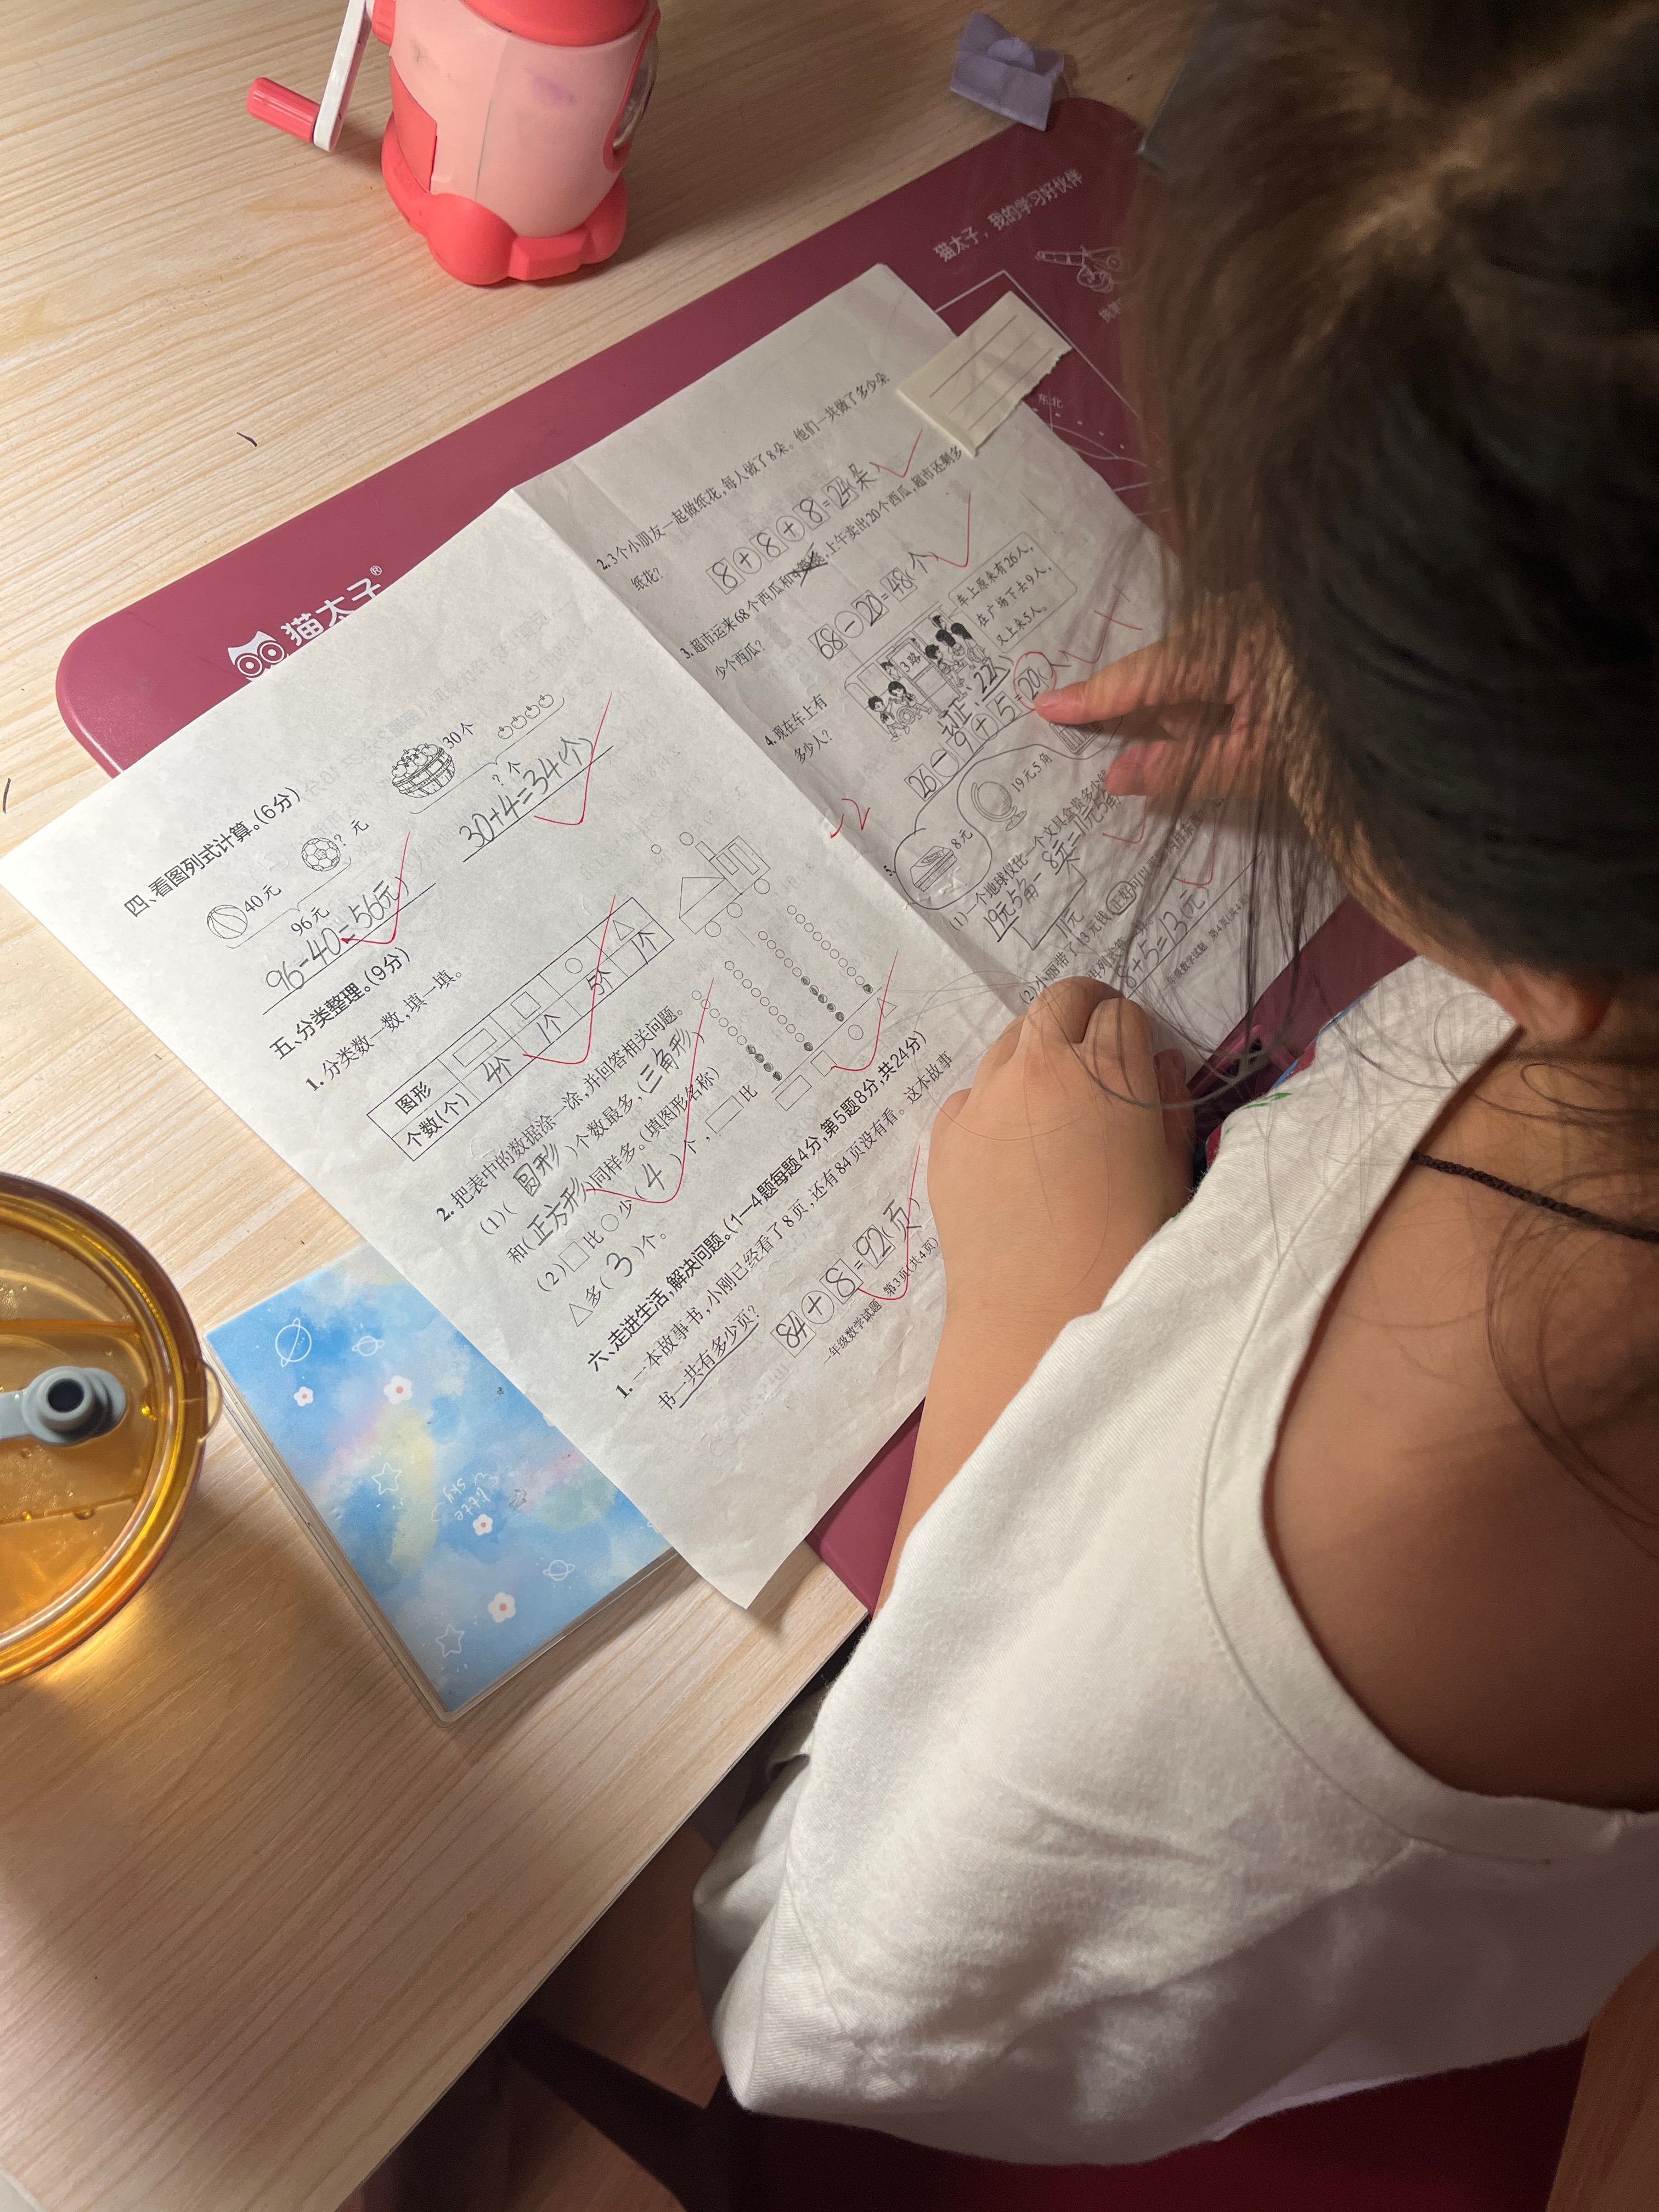 猫太子®
猫太子，我的学习好伙伴
东北
四、看图列式计算。(6分)
40元 ? 元
96元
96-40=56(元)
30个
? 个
30+4=34(个)
五、分类整理。(9分)
1. 分类数一数，填一填。
图形
个数(个) 4个 1个 5个 1个
2. 把表中的数据涂一涂，并回答相关问题。
(1)(圆形)个数最多，(三角形)
和(正方形)同样多。(填图形名称)
(2)□比○少(4)个，▭比
△多(3)个。
六、走进生活，解决问题。(1—4题每题4分，第5题8分，共24分)
1. 一本故事书，小刚已经看了8页，还有84页没有看。这本故事
书一共有多少页?
84+8=92(页)
一年级数学试题 第3页(共4页)
2. 3个小朋友一起做纸花，每人做了8朵。他们一共做了多少朵
纸花?
8+8+8=24(朵)
3. 超市运来68个西瓜和，上午卖出20个西瓜，超市还剩多
少个西瓜?
68-20=48(个)
4. 现在车上有
多少人?
3路
车上原来有26人，
在广场下去9人，
又上来5人。
订正: 22人
26-9+5=20(
-2
5.
8元
19元5角
(1)一个地球仪比一个文具盒贵多少钱
19元5角-8元=11元5角
11元
(2)小丽带了13元钱，正好可以
8+5=13(元)
年级数学试题 第4页(共4
Little
sky